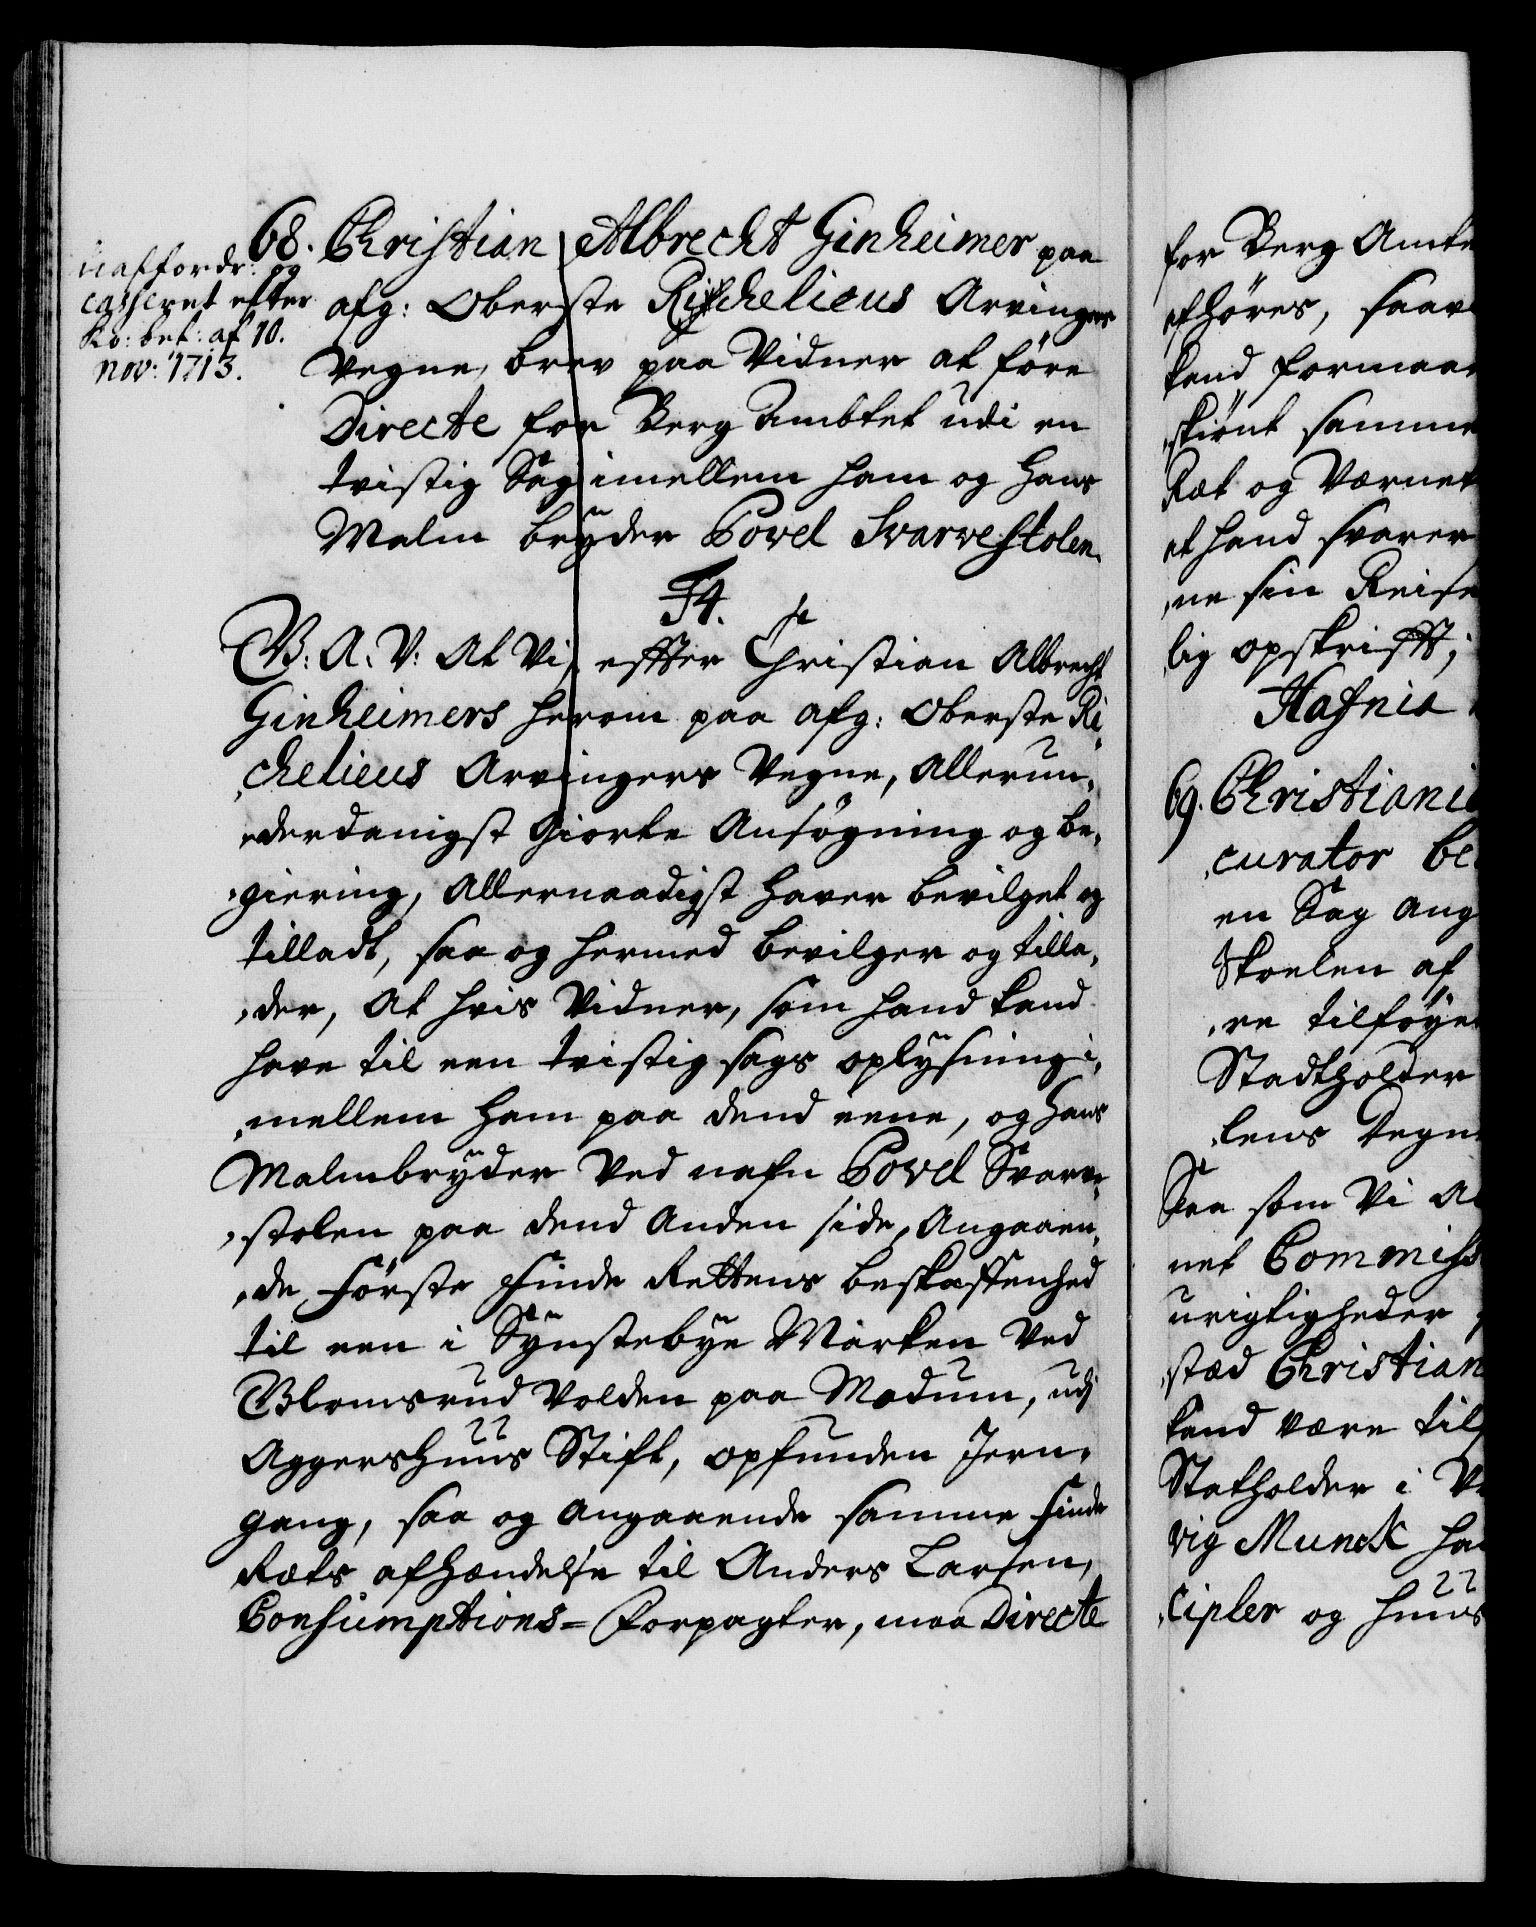 68. Christian Albrecht Ginheimer paa
afg: Oberste Richelieus Arvingers
Vegne, brev paa Vidner at føre
Directe for Berg Ambtet udi en
tvistig Sag imellem ham og hans
Malm bryder Povel Svarvestolen.
uaffordr: og
casseret efter
Ko: bef: af 10.
nov: 1713.
F4.
B: A: V: At Vi, effter Christian Albrecht
Ginheimers herom paa afg: Oberste Ri„
„chelieus Arvingers Vegne, Allerun„
„derdanigst Giorte Ansøgning og be„
„giering, Allernaadigst haver bevilget og
tilladt, saa og hermed bevilger og tilla„
„der, At hvis Vidner, som hand kand
have til een tvistig sags oplysning i„
„mellem ham paa dend eene, og hans
Malmbryder Ved nafn Povel Svarve„
„stolen paa dend Anden side, Angaaen„
„de Første Finde Rettens beskaffenhed
til een i Synstebye Marken Ved
Blomsrud Volden paa Modum, udj
Aggershuus Stift, opfunden Jern„
gang, saa og angaaende samme Finde
Rets afhændelse til Anders Larsen,
Consumptions= Forpagter, maa Directe
for Berg Amte
afhøres, saav
kand formaa
„skiønt samme
Ret og Værnet
at hand svarer
„ne sin Reise
„lig opskrifft;
Hafnia
69. Christiani
„curator be
en Sag ang
Skoelen af
„re tilføye
Stadtholder
„lens Vegn
Saa som Vi A
net Commiss
urigtigheder
„stæd Christian
kand være til
Statholder i
vig Munck ha
„cipler og huus